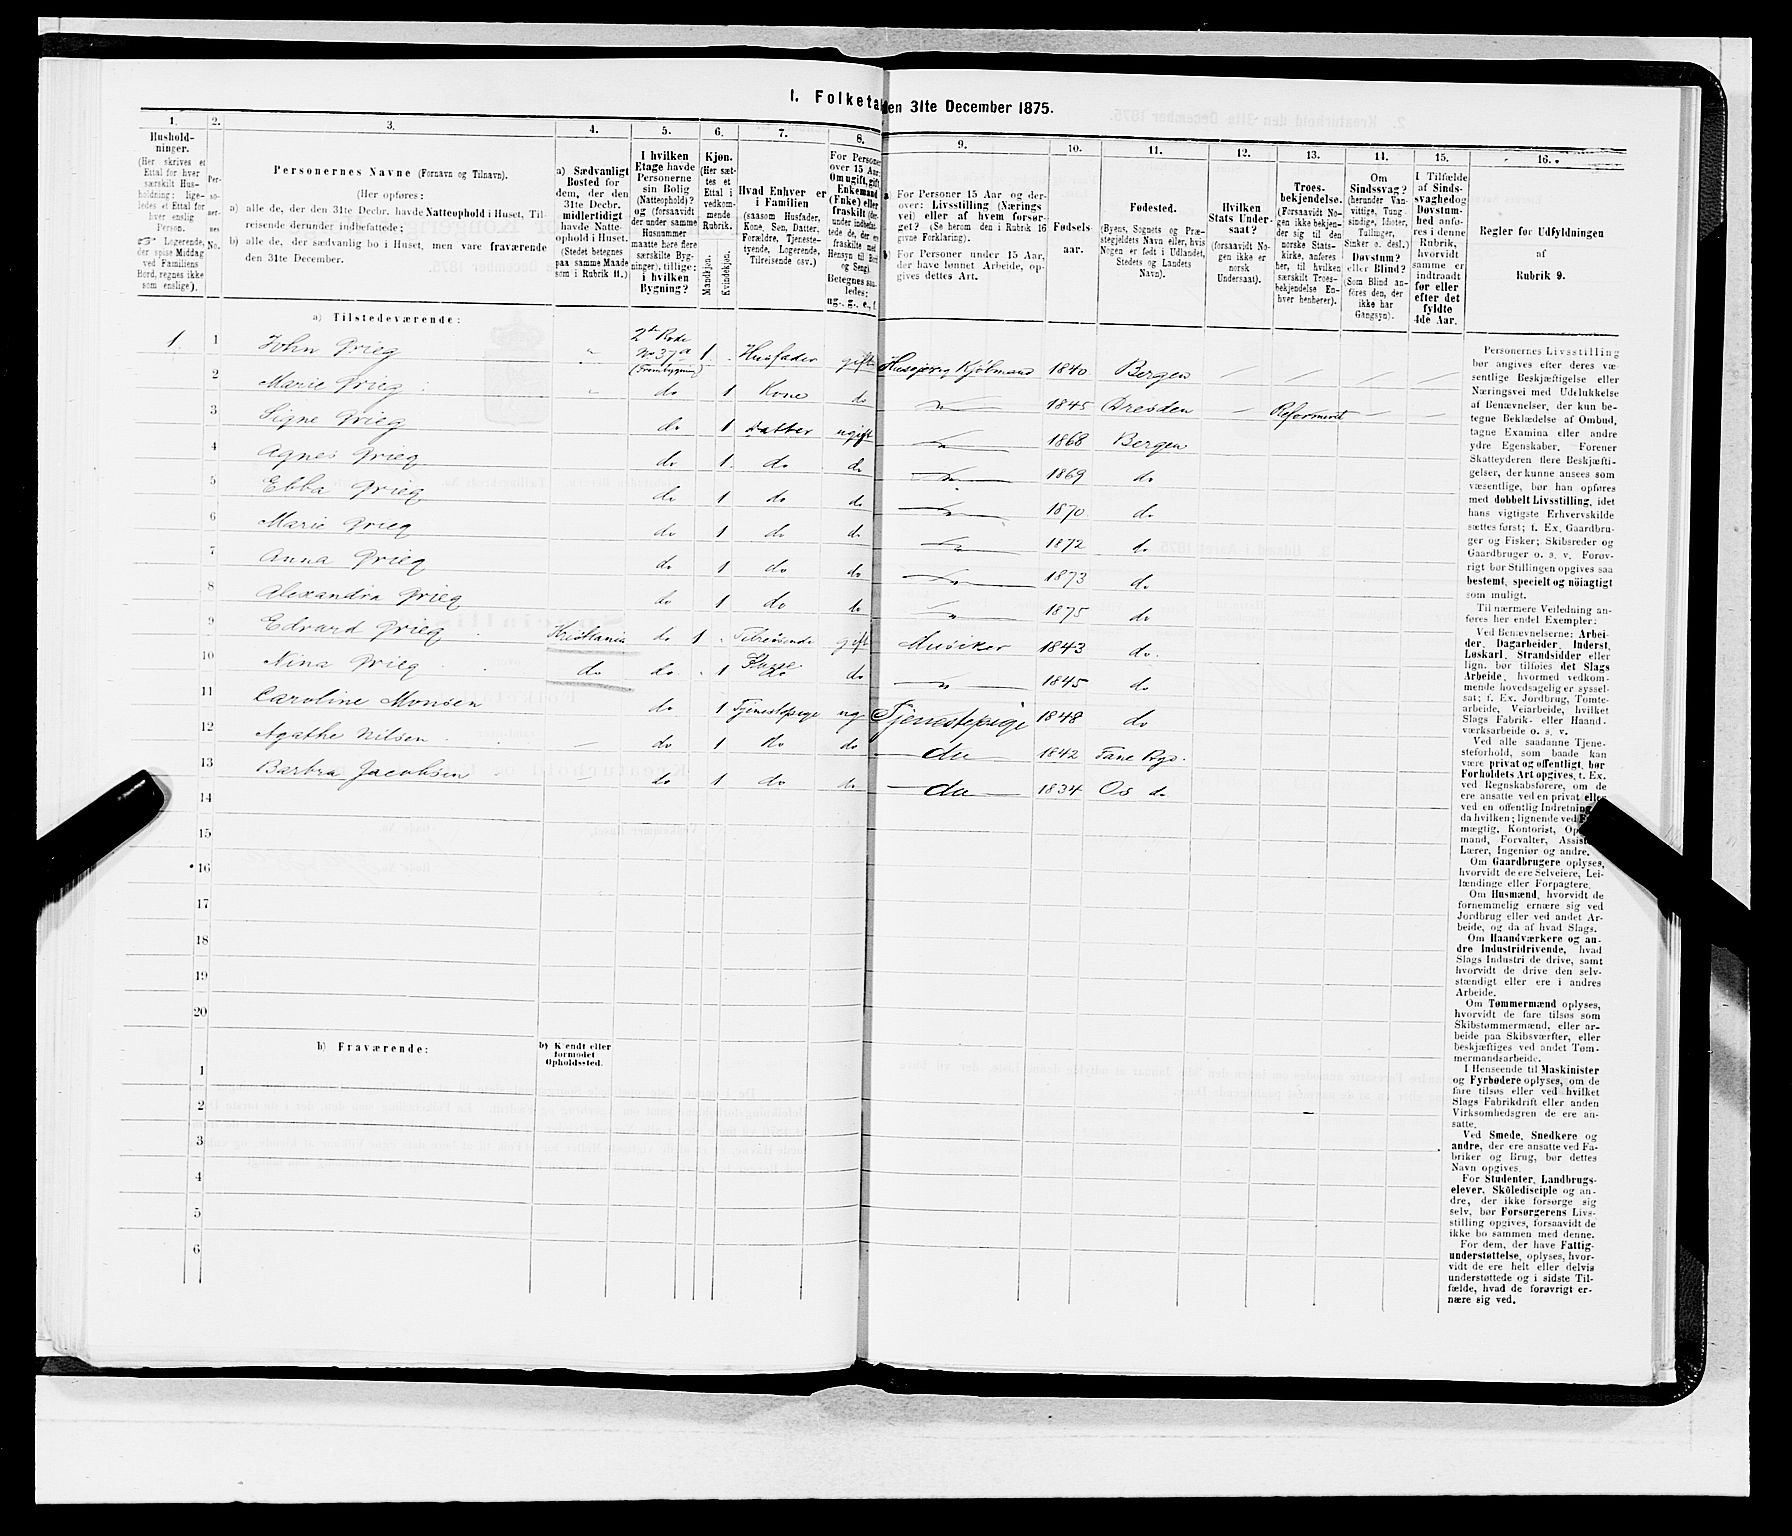 1. Folketal den 31te December 1875.
1. 2. 3. 4. 5. 6. 7. 8. 9. 10. 11. 12. 13. 14. 15. 16.
Hushold-
ninger.
(Her skrives et
Ettal for hver
særskilt Hus-
holdning; lige-
ledes et Ettal for
hver enslig
Person.
Logerende,
der spise Middag
ved Familiens
Bord, regnes ikke
som enslige).
Per-
so-
ner-
nes
No.
Personernes Navne (Fornavn og Tilnavn).
(Her opføres:
a) alle de, der den 31te Decbr. havde Natteophold i Huset, Til-
reisende derunder indbefattede;
b) alle de, der sædvanlig bo i Huset, men vare fraværende
den 31te December.
a) Sædvanligt
Bosted for
dem, der den
31te Decbr.
midlertidigt
havde Natte-
ophold i Huset.
(Stedet betegnes
paa samme Maade
som i Rubrik 11.)
I hvilken
Etage havde
Personerne
sin Bolig
(Natteophold)?
og (forsaavidt
der under samme
Husnummer
maatte høre flere
særskilte Byg-
ninger), tillige:
i hvilken
Bygning?
Kjøn.
(Her sæt-
tes et
Ettal i
vedkom-
mende
Rubrik.
Mandkjøn.
Kvindekjøn.
Hvad Enhver er
i Familien
(saasom Husfader,
Kone, Søn, Datter,
Forældre, Tjeneste-
tyende, Logerende,
Tilreisende osv.)
For Personer
over 15 Aar:
Om ugift, gift
Enkemand
(Enke) eller
fraskilt (der-
under indbefat-
tede de, der ere
fraskilte med
Hensyn til Bord
og Seng).
Betegnes saa-
ledes:
ug., g., e., f.
a) For Personer 15 Aar og der-
over: Livsstilling (Nærings
vei) eller af hvem forsør-
get? (Se herom den i Rubrik 16
givne Forklaring).
b) For Personer under 15 Aar,
der have lønnet Arbeide, op-
gives dettes Art.
Fødsels-
aar.
Fødested.
(Byens, Sognets og Præ-
stegjeldets Navn eller, hvis
Nogen er født i Udlandet,
Stedets og Landets
Navn).
Hvilken
Stats Under-
saat?
(forsaavidt No-
gen ikke er
norsk
Undersaat).
Troes-
bekjendelse.
(Forsaavidt No-
gen ikke bekjen-
der sig til den
norske Stats-
kirke, anføres
her, til hvilken
særskilt Troes-
bekjendelse En-
hver henhører).
Om
Sindssvag?
(herunder Van-
vittige, Tung-
sindige, Idioter,
Tullinger,
Sinker o. desl.)
Døvstum?
eller Blind?
(Som Blind an-
føres den, der
ikke har
Gangsyn).
I Tilfælde
af Sinds-
svaghed og
Døvstum-
hed anfø-
res i denne
Rubrik,
hvorvidt
samme er
indtraadt
før eller
efter det
fyldte
4de Aar.
Regler for Udfyldningen
af
Rubrik 9.
a) Tilstedeværende:
1. 1 John Grieg " 2de Rode No 37a (Frembygning) 1 Husfader gift Huseier og Kjøbmand 1840 Bergen
2 Marie Grieg " do 1 Kone do 1845 Dresden Reformert
3 Signe Grieg do 1 Datter ugift 1868 Bergen
4 Agnes Grieg do 1 do do 1869 do
5 Ebba Grieg do 1 do do 1870 do
6 Marie Grieg do 1 do do 1872 do
7 Anna Grieg do 1 do do 1873 do
8 Alexandra Grieg do 1 do do 1875 do
9 Edvard Grieg Kristiania do 1 Tilreisende gift Musiker 1843 do.
10 Nina Grieg do do 1 do do 1845 do
11 Caroline Monsen do 1 Tjenestepige ug Tjenestepige 1848 do
12 Agathe Nilsen do 1 do do do 1842 Fane Pgs.
13 Barbra Jacobsen do 1 do do do 1834 Os do
14
15
16
17
18
19
20
b) Fraværende:
b) Kjendt eller
formodet
Opholdssted.
1
2
3
4
5
6
Personernes Livsstilling
bør angives efter deres væ-
sentlige Beskjæftigelse eller
Næringsvei med Udelukkelse
af Benævnelser, der kun be-
tegne Beklædelse af Ombud,
tagne Examina eller andre
ydre Egenskaber. Forener
Skatteyderen flere Beskjæfti-
gelser, der kunne ansees som
væsentlige, bør han opføres
med dobbelt Livsstilling, idet
hans vigtigste Erhvervskilde
sættes først; t. Ex. Gaardbru-
ger og Fisker; Skibsreder og
Gaardbruger o. s. v. Forøv-
rigt bør Stillingen opgives saa
bestemt, specielt og nöiagtigt
som muligt.
Til nærmere Veiledning an-
føres her endel Exempler:
Ved Benævnelserne: Arbei-
der, Dagarbeider, Inderst,
Løskarl, Strandsidder eller
lign. bør tilføies det Slags
Arbeide, hvormed vedkom-
mende hovedsagelig er syssel-
sat; t. Ex. Jordbrug, Tomte-
arbeide, Veiarbeide, hvilket
Slags Fabrik- eller Haand-
værksarbeide o. s. v.
Ved alle saadanne Tjene-
steforhold, som baade kan
være privat og offentligt, bør
Forholdets Art opgives, t. Ex.
ved Regnskabsførere, om de
ere ansatte ved en privat eller
ved en offentlig Indretning
da hvilken; lignende ved
mægtig, Kontorist, Op
mand, Forvalter, Assis
Lærer, Ingeniør og andre.
Om Gaardbrugere oplyses,
hvorvidt de ere Selveiere, Lei-
lændinge eller Forpagtere.
Om Husmænd, hvorvidt de
fornemmelig ernære sig ved
Jordbrug eller ved andet Ar-
beide, og da af hvad Slags.
Om Haandværkere og an-
dre Industridrivende, hvad
Slags Industri de drive, samt
hvorvidt de drive den selv-
stændigt eller ere i andres
Arbeide.
Om Tømmermænd oplyses,
hvorvidt de fare tilsøs som
Skibstømmermænd, eller ar-
beide paa Skibsværfter, eller
beskjæftiges ved andet Tøm-
mermandsarbeide.
I Henseende til Maskinister
og Fyrbødere oplyses, om de
fare tilsøs eller ved hvilket
Slags Fabrikdrift eller anden
Virksomhedsgren de ere an-
satte.
Ved Smede, Snedkere og
andre, der ere ansatte ved Fa-
briker og Brug, bør dettes
Navn opgives.
For Studenter, Landbrugs-
elever, Skoledisciple og an-
dre, der ikke forsørge sig
selv, bør Forsørgerens Livs-
stilling opgives, forsaavidt de
ikke bo sammen med denne.
For dem, der have Fattig-
understøttelse, oplyses, hvor-
vidt de ere helt eller delvis
understøttede og i sidste Til-
fælde, hvad de forøvrigt er-
nære sig ved.